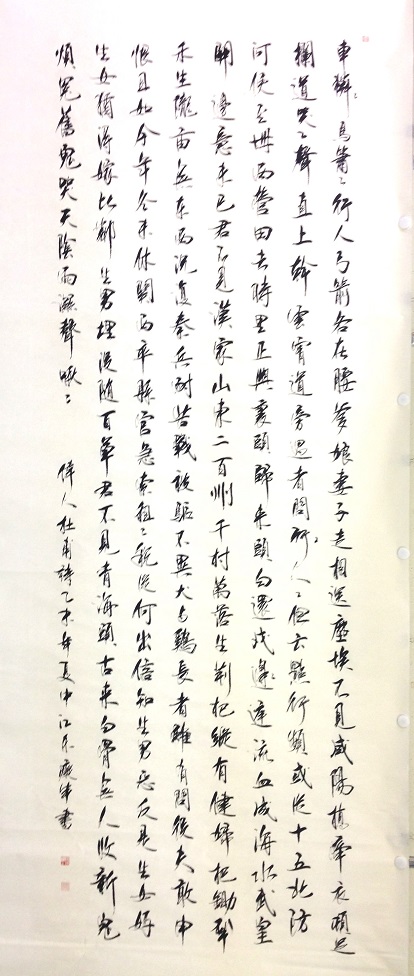 車轔〻馬蕭〻行人弓箭各在腰爹娘妻子走相送塵埃不見咸陽橋牽衣頓足
攔道哭〻聲直上幹雲霄道旁過者問行〻人〻但云點行頻或從十五北防
河便至卌西營田去時里正與裹頭歸來頭白還戍邊〻庭流血成海水武皇
開邊意未已君不見漢家山東二百州千村萬落生荊杞縱有健婦把鋤犁
禾生隴畝無東西況復秦兵耐苦戰被驅不異犬与鷄長者雖有問役夫敢申
恨且如今年冬未休關西卒縣官急索租〻稅從何出信知生男惡反是生女好
生女猶得嫁比鄰生男埋沒隨百草君不見青海頭古來白骨無人收新鬼
煩冤舊鬼哭天陰雨濕聲啾〻
偉人杜甫詩乙未年夏中江書